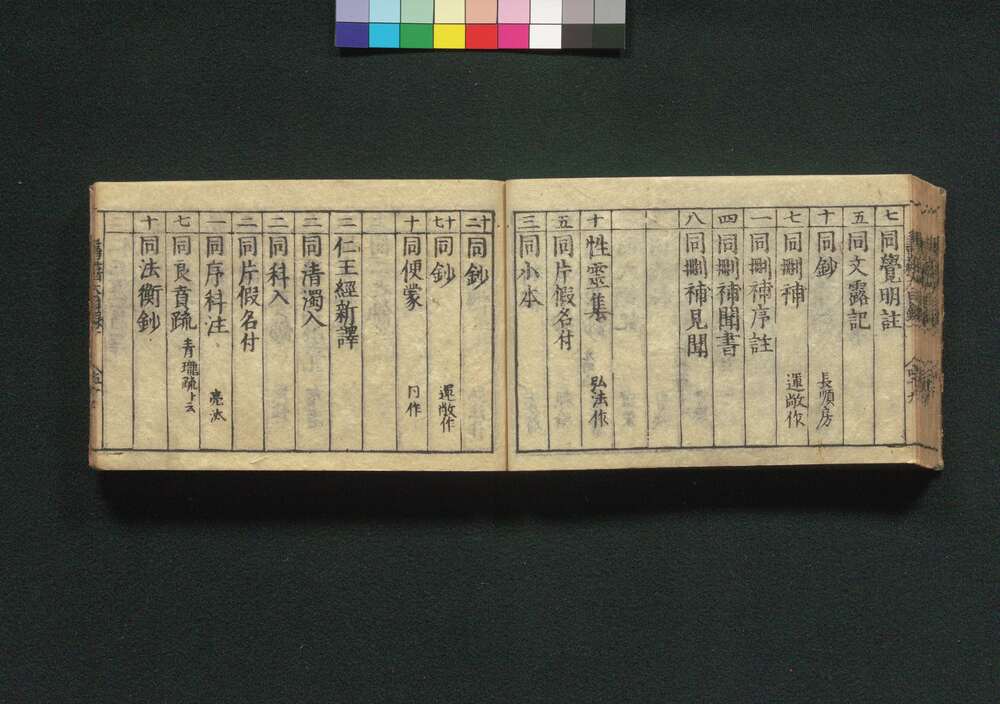 七 同覺明註
五 同文露記
十 同鈔 長順房
七 同刪補 運敞作
一 同刪補序註
四 同刪補聞書
八 同刪補見聞
十 性霊集 弘法作
五 同片假名付
三 同小本
十二 同鈔
十七 同鈔 運敞作
十 同便蒙 同作
二 仁王經新譯
二 同清濁入
二 同科入
二 同片假名付
一 同序科注 亮汰
七 同良賁疏 青瓏疏ト云
十 同法衡鈔